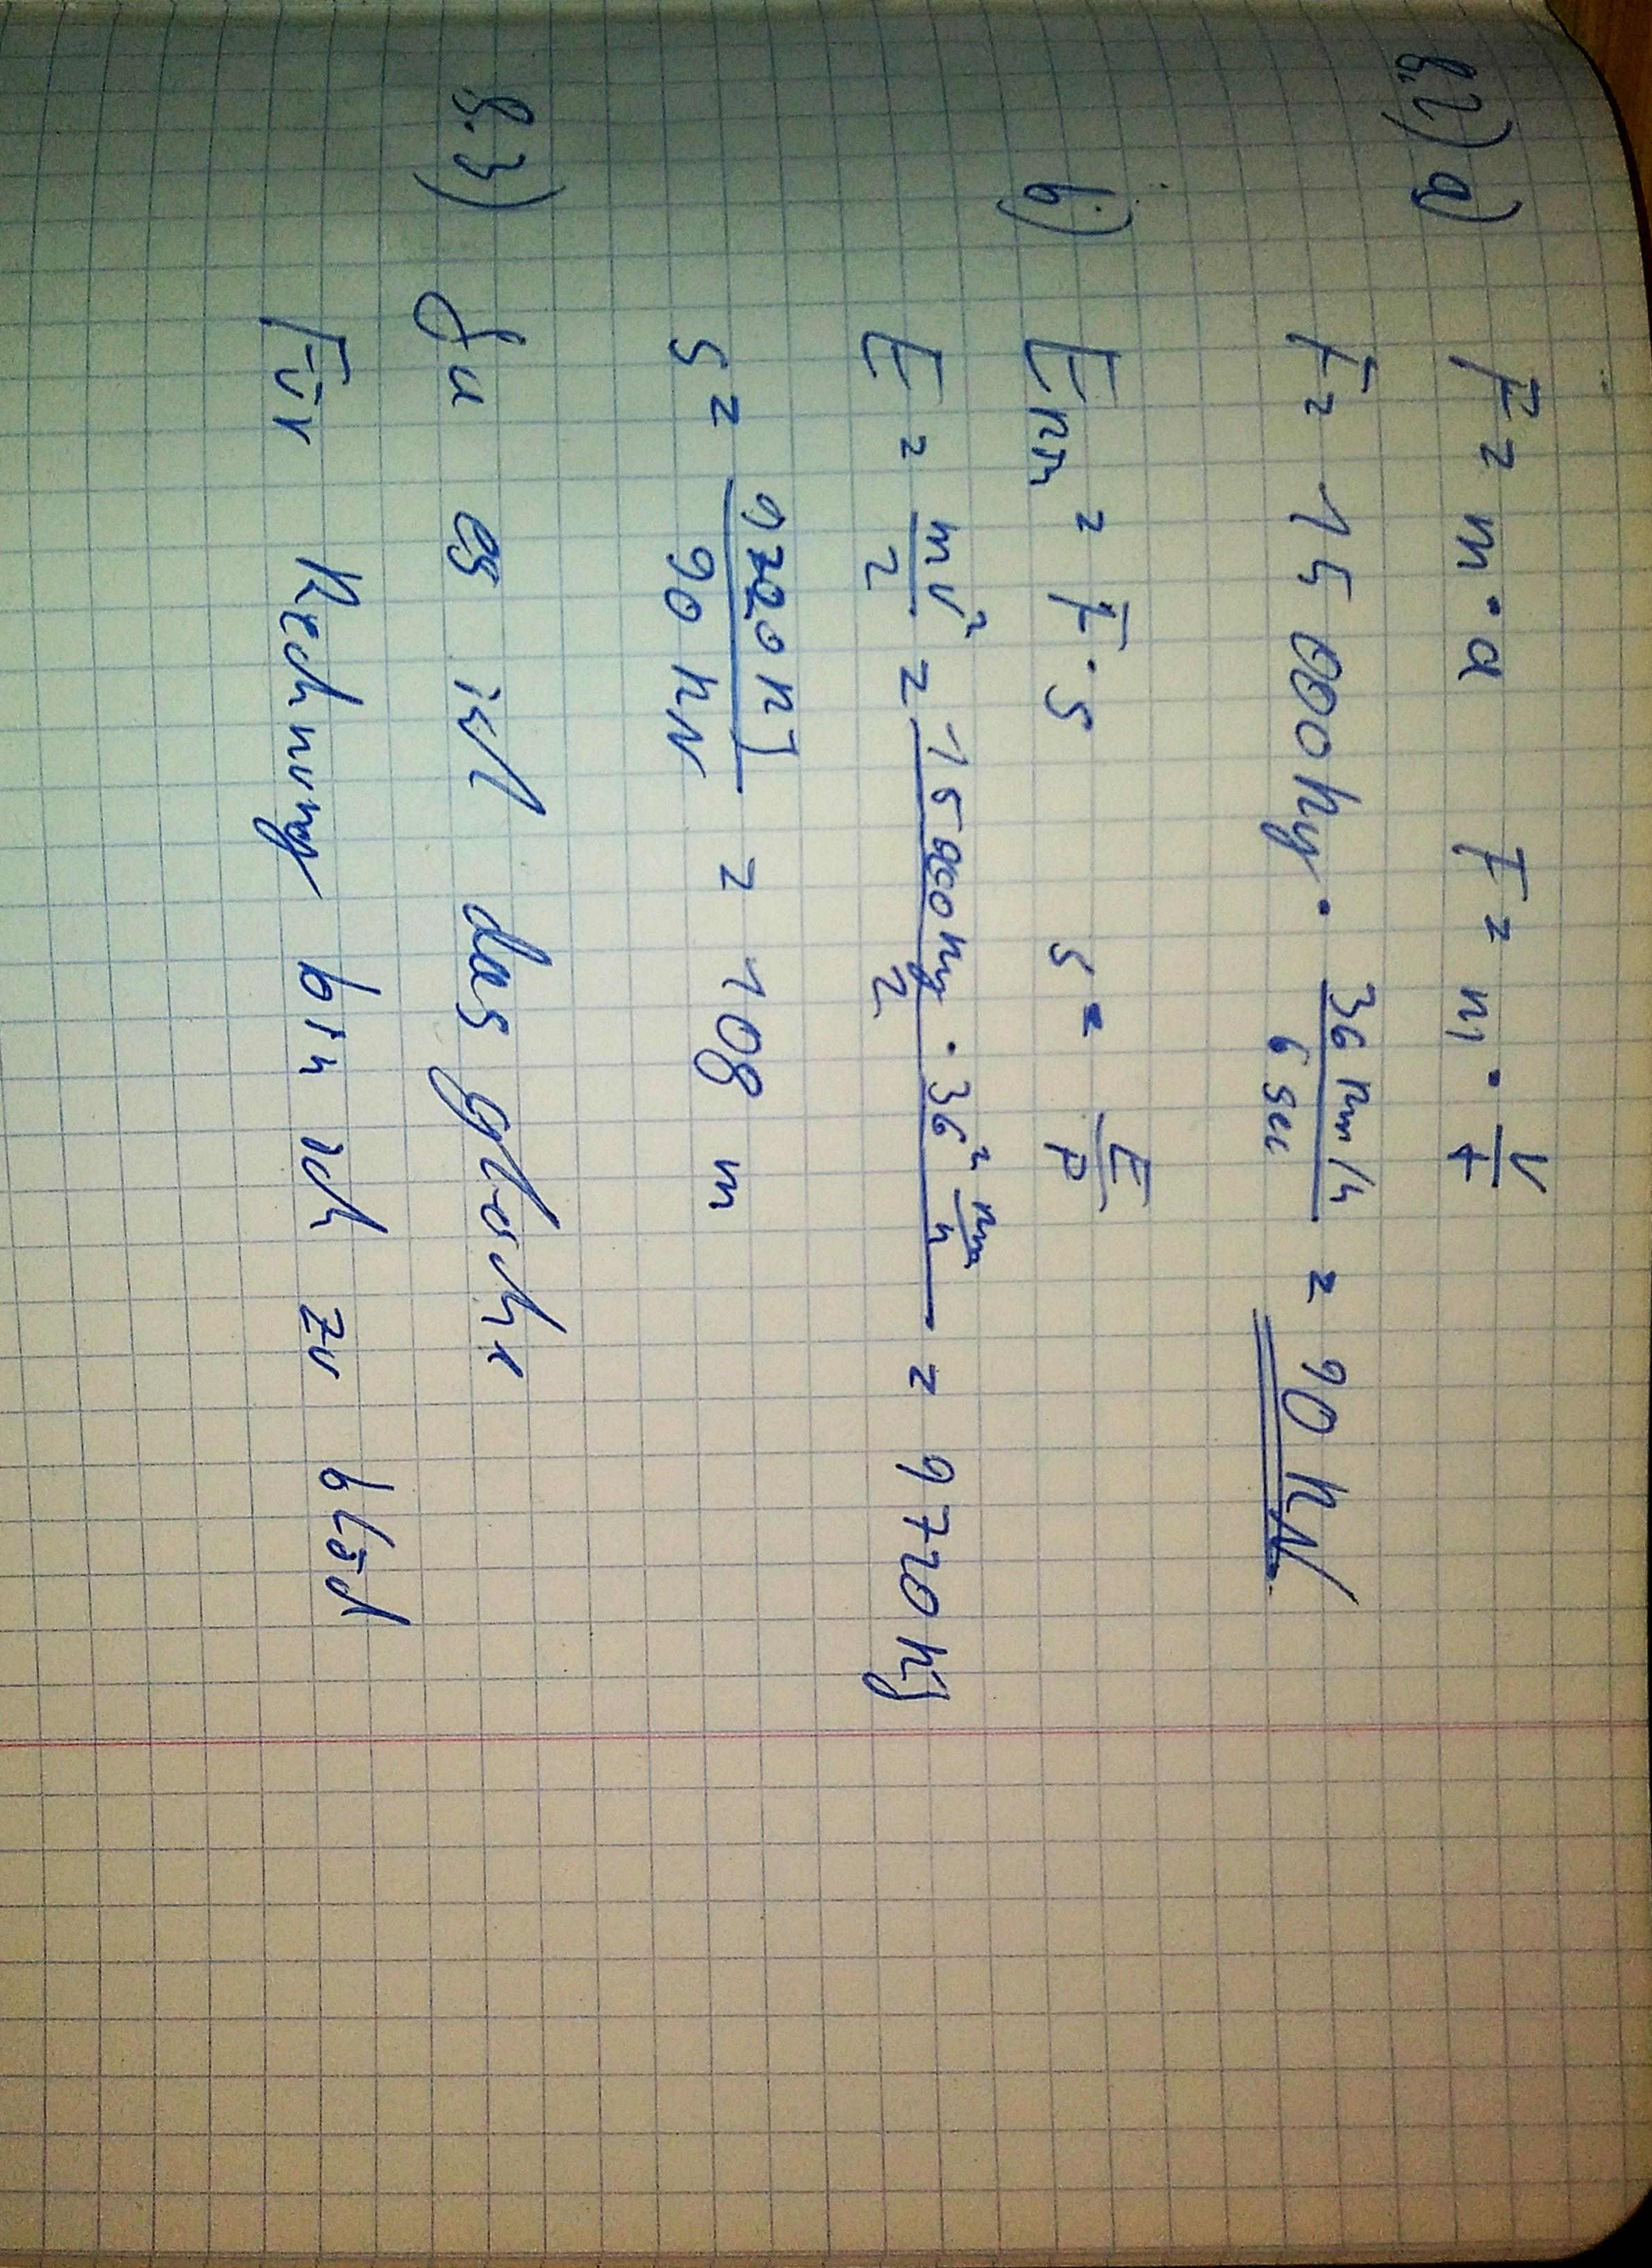 8.2) a) F = m · a F = m · v/t
F = 15 000 kg · 36 km/h / 6 sec = 90 kN
b) Ekin = F · s s = E/F
E = m v² / 2 = 15 000 kg · 36² km/h / 2 = 9720 kJ
s = 9720 kJ / 90 kN = 108 m
8.3) Ja es ist das gleiche
Für Rechnung bin ich zu blöd